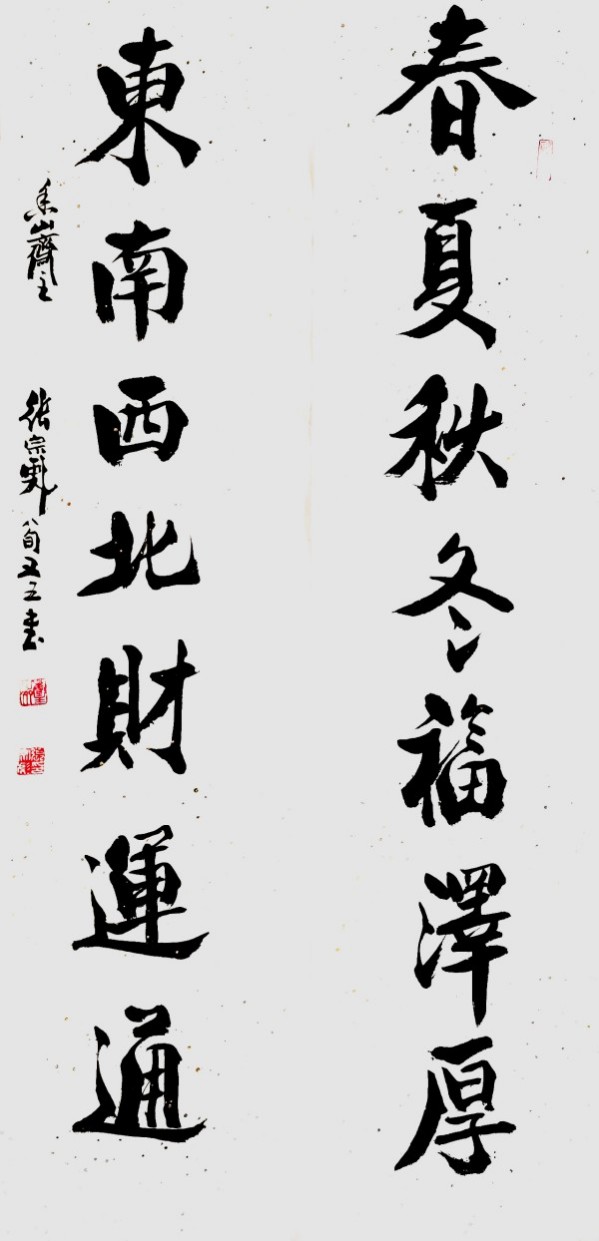 春夏秋冬福澤厚
東南西北財運通
山齋主
張宗彪八旬又三書